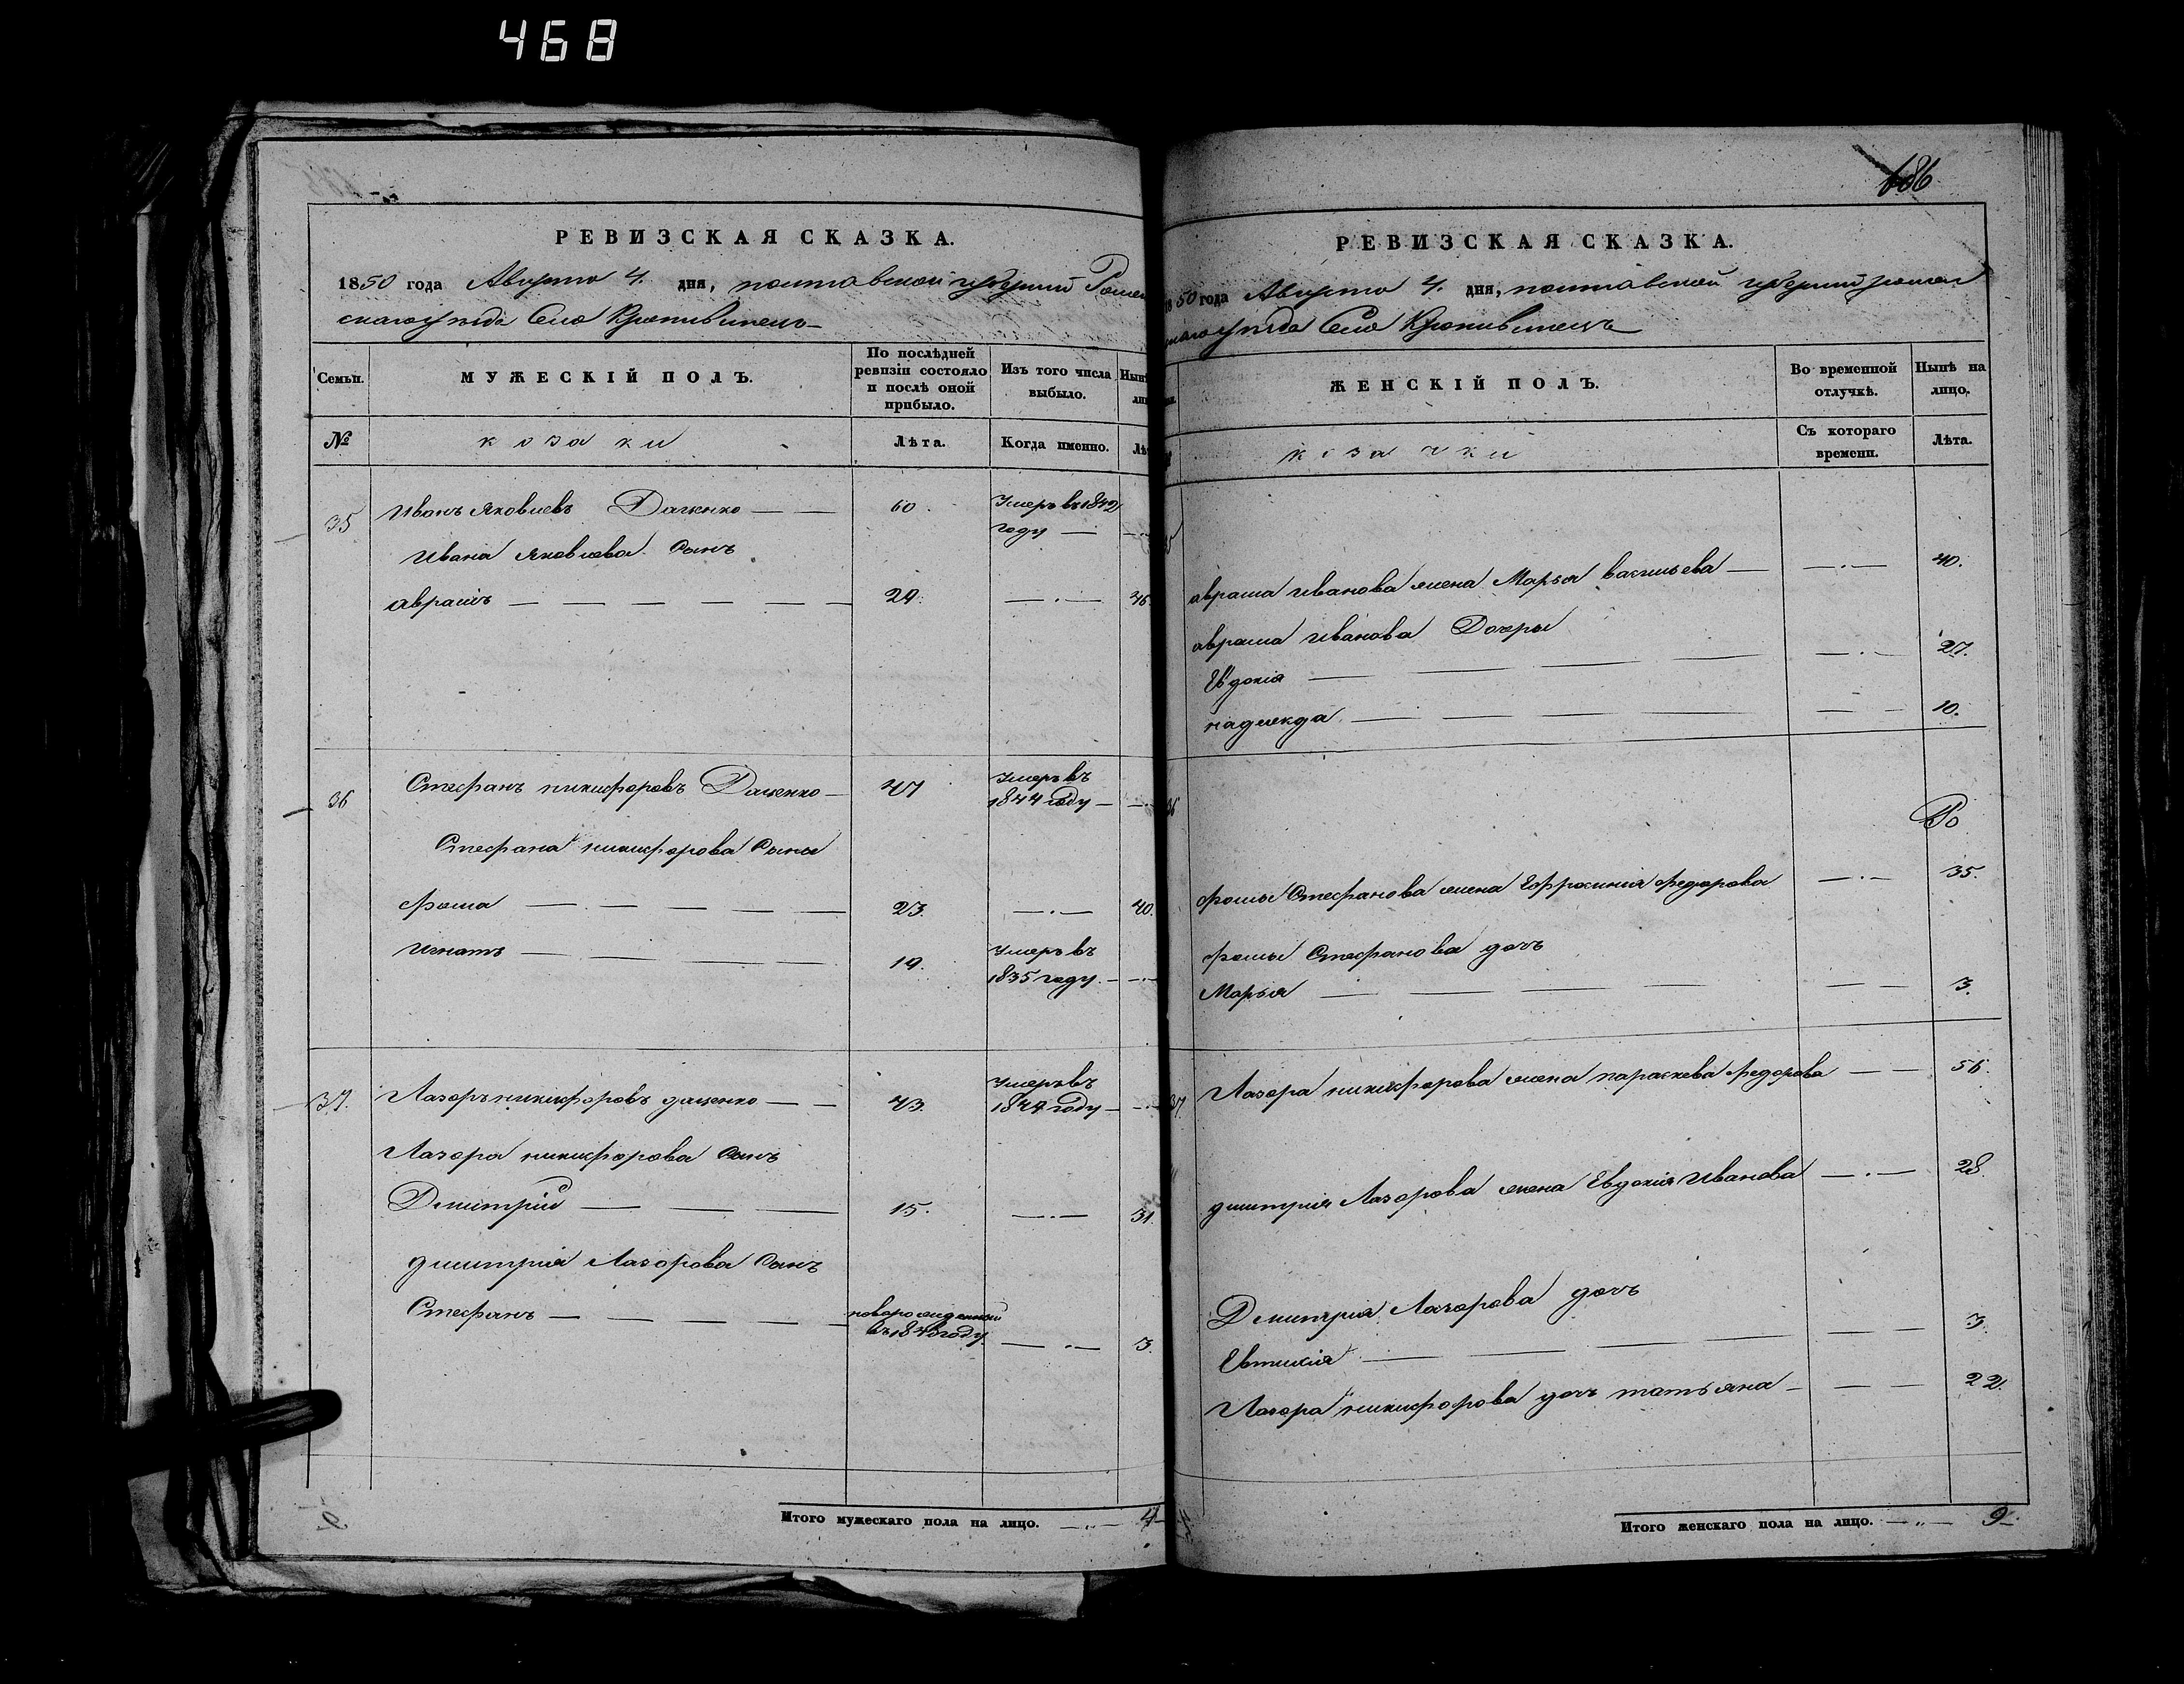 468
РЕВИЗСКАЯ СКАЗКА.
1850 года Августа 4. дня, полтавской губерний Ромен
скаго уѣзда Село Кропивинецъ
Семьи. МУЖЕСКІЙ ПОЛЪ. По послѣдней ревизіи состояло и послѣ оной прибыло. Изъ того числа выбыло.
№ козаки Лѣта. Когда именно.
35 Иванъ Яковлевъ Даценко 60. Умеръ въ 1842
году
Ивана Яковлева Сынъ
аврамъ 29. 46.
36 Стефанъ никифоровъ Даценко 47 Умеръ въ
1844 году
Стефана никифорова Сыны
фома 23. 40.
Игнатъ 19. Умеръ въ
1835 году.
37. Лазоръ никифоровъ даценко 43. Умеръ въ
1844 году
Лазора никифорова Сынъ
Дмитрій 15. 31.
дмитрия Лазорова Сынъ
Стефанъ новорожденный
въ 184 году 3.
Итого мужескаго пола на лицо. 4
686
РЕВИЗСКАЯ СКАЗКА.
50 года Августа 4. дня, полтавской губерний ромен
скаго уѣзда Село Кропивинецъ
ЖЕНСКІЙ ПОЛЪ. Во временной отлучкѣ. Нынѣ на лицо.
козачки Съ котораго времени. Лѣта.
аврама Иванова жена Марья васильева 40.
аврама Иванова Дочеры
Евдокія 27.
надежда 10.
36
фомы Стефанова жена Ефросиния федорова 35.
фомы Стефанова дочь
Марья 3.
37 Лазора никифорова жена параскева федорова 56.
дмитрия Лазорова жена Евдокія Иванова 28.
Дмитрия Лазорова дочь
Евтихія 3.
Лазора никифорова дочь татьяна 22.
Итого женскаго пола на лицо. 9